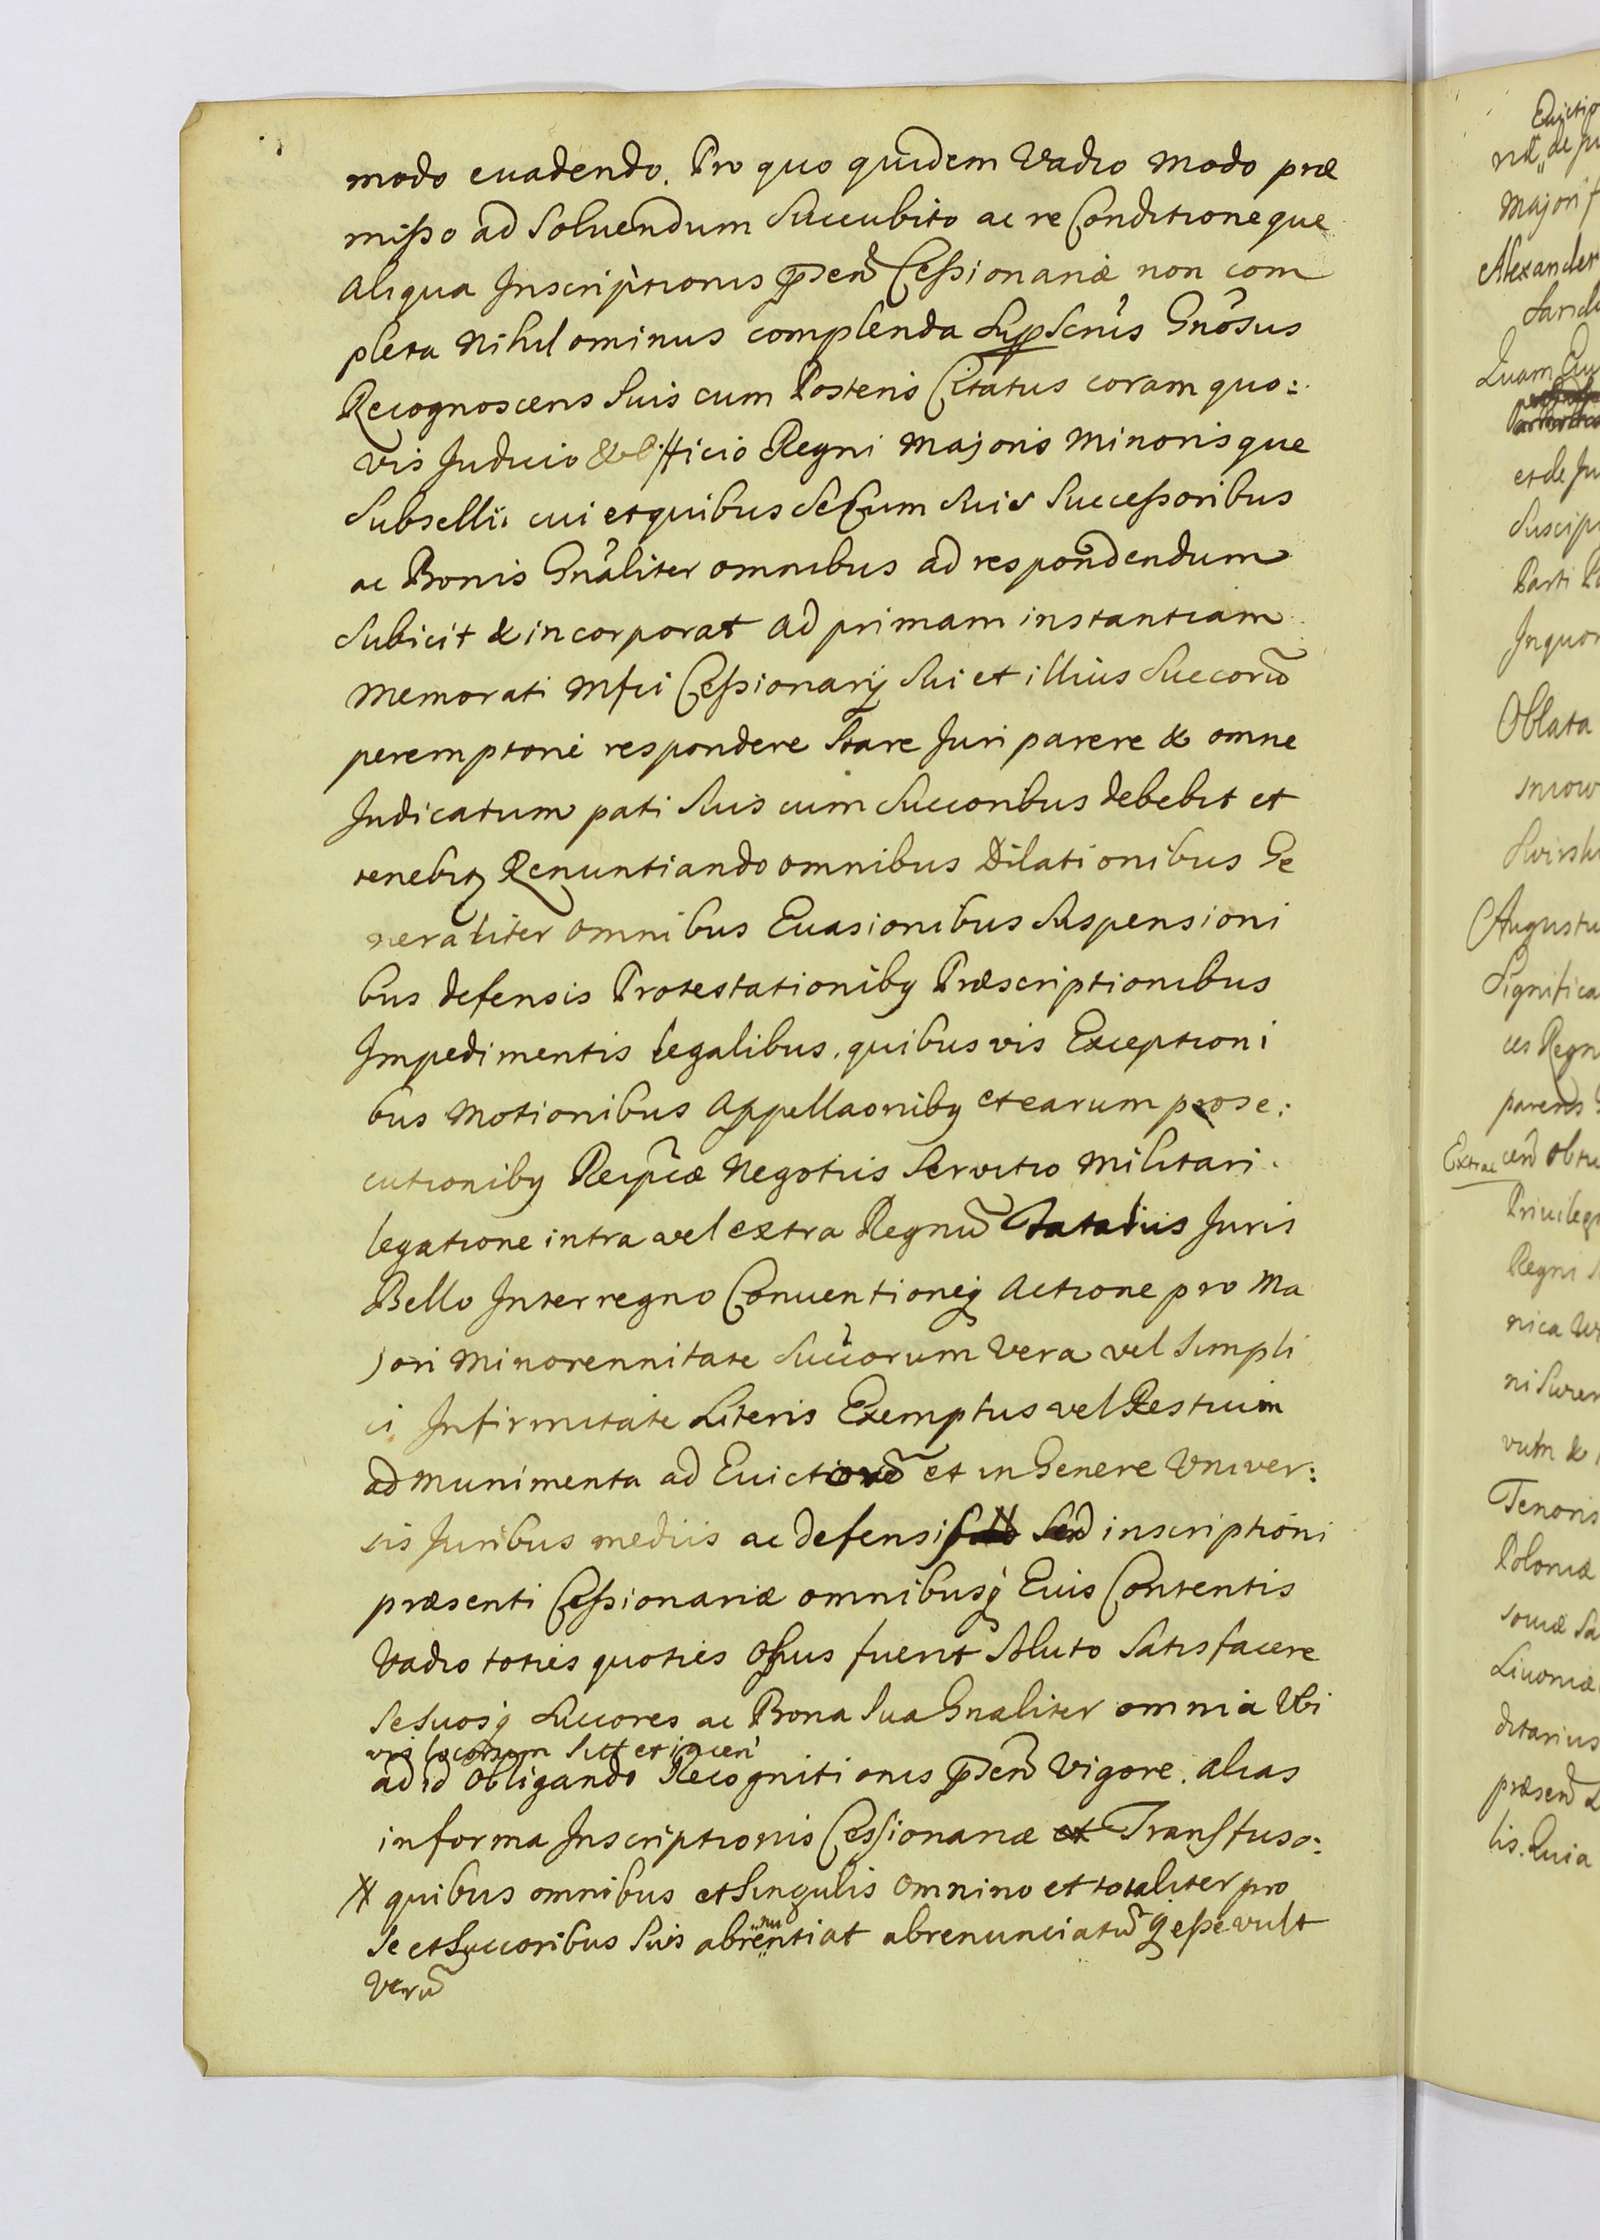 modo evadendo. Pro quo quidem Vadio modo præ
misso ad Solvendum Succubito ac re Conditioneque
aliqua Inscriptionis pñsen Cessionariæ non com
pleta nihilominus complenda Suppscrus Gnosus
Recognoscens Suis cum Posteris Citatus coram quo:
vis Judicio & officio Regni majoris minorisque
Subsellii cui et quibus se cum Suis Successoribus
ac Bonis Gnaliter omnibus ad respondendum
Subicit & incorporat ad primam instantiam
memorati Mfci Cessionarij Sui et illius Succorũ
peremptorie respondere Stare Juri parere & omne
Judicatum pati Suis cum Succoribus debebit et
tenebitq Renuntiando omnibus Dilationibus Ge
neraliter omnibus Evasionibus Suspensioni
bus defensis Protestationibq Præscriptionibus
Impedimentis legalibus, quibusvis Exceptioni
bus Motionibus Appellaonibq et earum prose:
cutionibq Reipcæ Negotiis Servitio Militari
legatione intra vel extra Regnũ Juris
Bello Interregno Conventioneq Actione pro Ma
jori Minorennitate Succorum Vera vel Simpli
ci Infirmitate Literis Exemptus vel
ad munimenta ad et in Genere Univer:
sis Juribus mediis ac defensis Sed inscriptioni
præsenti Cessionariæ omnibusq Euis Contentis
Vadio toties quoties Opus fuerit Soluto Satisfacere
Se Suosq Succores ac Bona Sua Gnaliter omnia Ubi
vis locorum Sita et iacen
ad id Obligando Recognitionis pñsen Vigore. alias
in forma Inscriptionis Cessionariæ et Transfuso:
# quibus omnibus et Singulis omnino et totaliter pro
Se et Succoribus Suis abrenuntiat abrenunciatũ q esse vult
Verũ
Evictio
Alexander
Quam
et de Ju
Suscip
Parti
Oblata
Augustu
Significa
ces Regn
Extrac
Privileg
Regni
nica
Tenoris
Poloniæ
Livoniæ
ditarius
præsen
lis. Quia